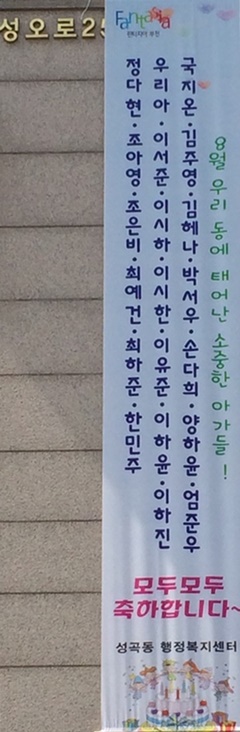 성오로25
Fantasia
판타지아 부천
8월 우리 동에 태어난 소중한 아가들!
국지온·김주영·김혜나·박서우·손다희·양하윤·엄준우
우리아·이서준·이시하·이시한·이유준·이하윤·이하진
정다현·조아영·조은비·최예건·최하준·한민주
모두모두
축하합니다~
성곡동 행정복지센터